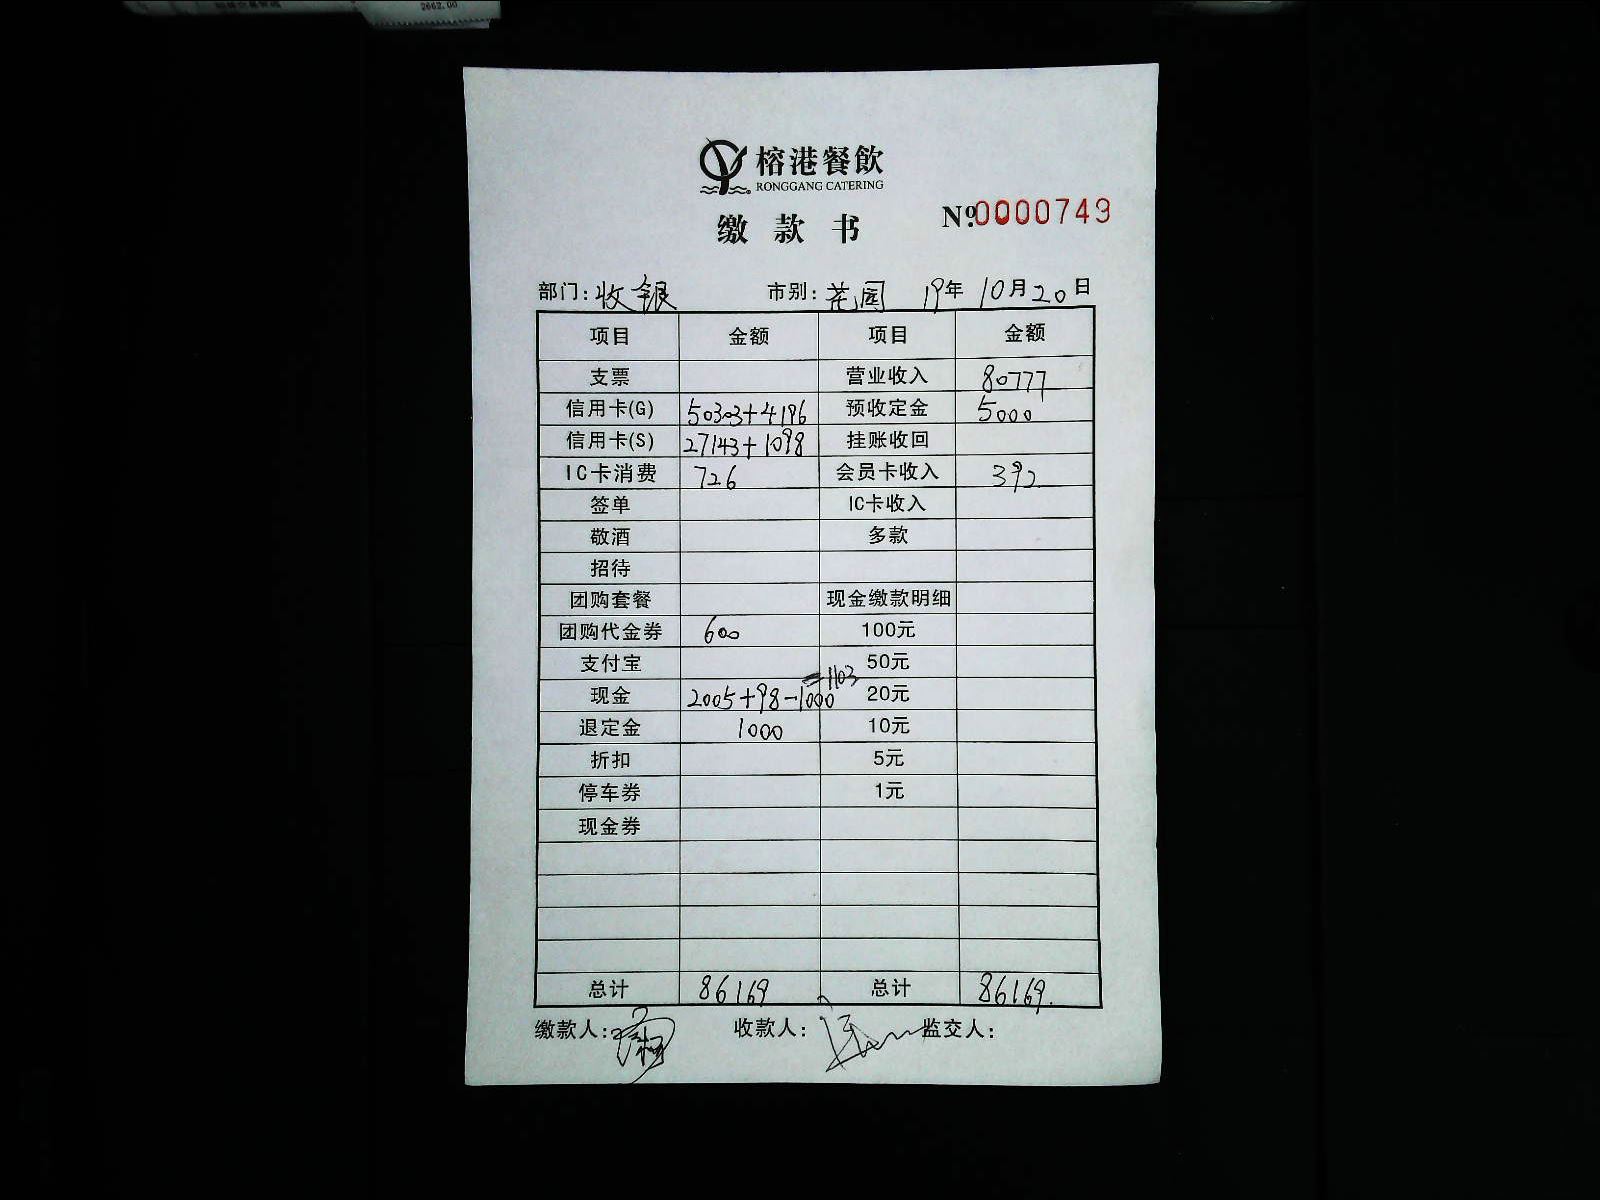 2662.00
榕港餐飲
RONGGANG CATERING
缴款书
Nº.0000749
部门:收银 市别:花园 19年10月20日
项目 金额 项目 金额
支票 营业收入 80777
信用卡(G) 50303+4196 预收定金 5000
信用卡(S) 27143+1098 挂账收回
IC卡消费 726 会员卡收入 392
签单 IC卡收入
敬酒 多款
招待
团购套餐 现金缴款明细
团购代金券 600 100元
支付宝 50元
现金 2005+98-1000=1103 20元
退定金 1000 10元
折扣 5元
停车券 1元
现金券
总计 86169 总计 86169.
缴款人: 收款人: 监交人: